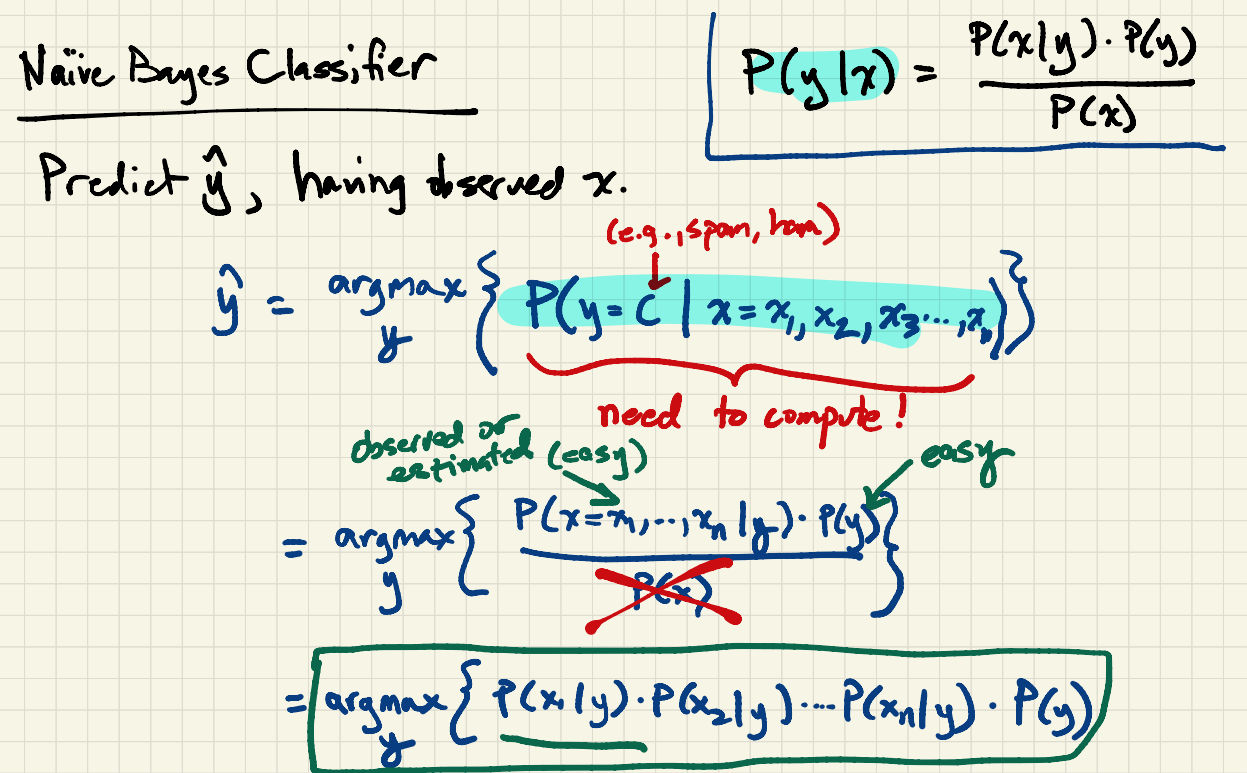 Naïve Bayes Classifier
P(y|x) = P(x|y) · P(y) / P(x)
Predict ŷ, having observed x.
(e.g., spam, ham)
ŷ = argmax y { P(y = C | x = x₁, x₂, x₃ ..., xₙ) }
need to compute!
observed or estimated (easy)
easy
= argmax y { P(x = xₙ, .., xₙ | y) · P(y) / P(x) }
= argmax y { P(x₁|y) · P(x₂|y) ... P(xₙ|y) · P(y)